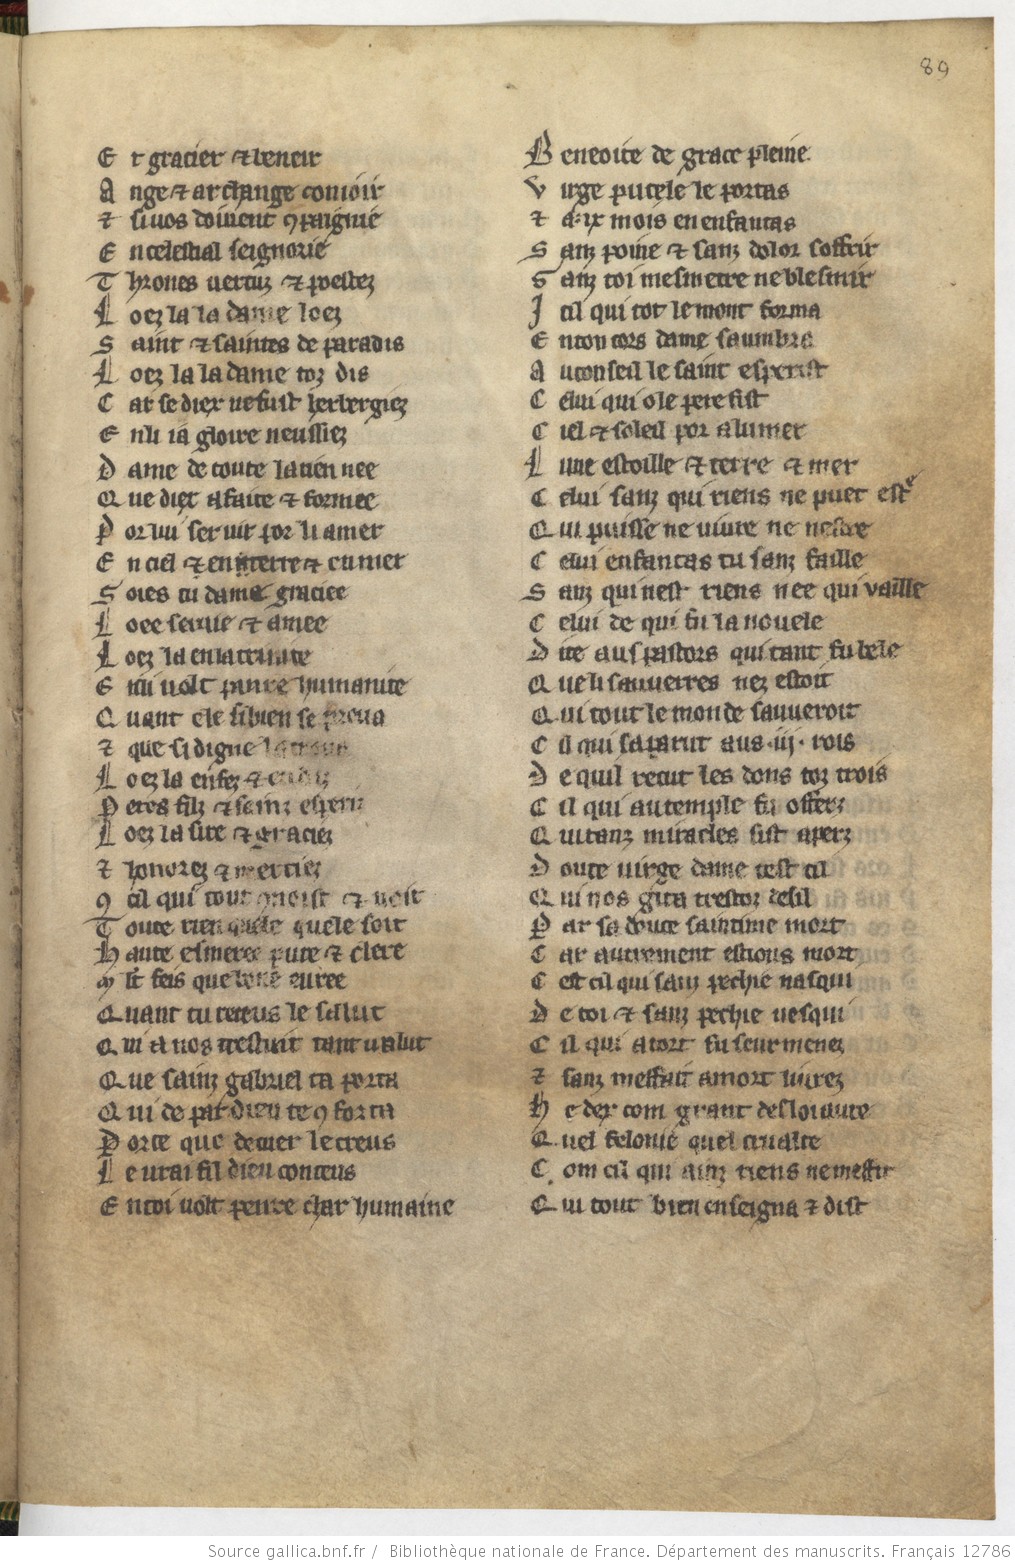 89
E t gracier ⁊ beneir
A nge ⁊ archange conioir
⁊ si vos doivent ꝯpaignie
E n celestial seignorie
T hrones vertuz ⁊ poestez
L oez la la dame loez
S aint ⁊ saintes de paradis
L oez la la dame toz dis
C ar se diex ne fust herbergiez
E n li ia gloire neussiez
D ame de toute la rien nee
Q ue diex a faite ⁊ formee
P or lui servir por li amer
E n ciel ⁊ en terre ⁊ en mer
S oies tu dame graciee
L oee servie ⁊ amee
L oez la en la trinite
E n li volt panre humanite
Q uant ele si bien se prova
⁊ que si digne la trova
L oez la enfez
P eres filz ⁊ sainz esperiz
L oez la site ⁊ graciez
⁊ honorez ⁊ merciez
ꝯ cil qui tout ꝯnoist ⁊ voit
T oute rien quele quele soit
H aute esmeree pure ⁊ clere
m lt feis que bone euree
Q uant tu receus le salut
Q ui a nos trestuit tant valut
Q ue sainz gabriel ta porta
Q ui de par dieu te ꝯforta
P orte que de mer le creus
L e vrai fil dieu conceus
E n toi volt penre char humaine
B eneoite de grace pleine
V irge pucele le portas
⁊ a .ix mois en enfantas
S anz poine ⁊ sanz dolor soffrir
S anz toi mesmetre ne blesmir
I cil qui tot le mont forma
E n ton cors dame saumbra
A u conseil le saint esperist
C elui qui o le pere fist
C iel ⁊ soleil por alumer
L une estoille ⁊ terre ⁊ mer
C elui sanz qui riens ne puet estre
Q ui puisse ne vivre ne nestre
C elui enfantas tu sanz faille
S anz qui nest riens nee qui vaille
C elui de qui fu la novele
D ite aus pastors qui tant fu bele
Q ue li sauverres nez estoit
Q ui tout le monde sauveroit
C il qui saparut aus .iij. rois
D e quil recut les dons toz trois
C il qui au temple fu offerz
Q ui tanz miracles fist aperz
D oute virge dame cest cil
Q ui nos gita trestoz desil
P ar sa douce saintime mort
C ar autrement estions mort
C est cil qui sanz pechie nasqui
D e toi ⁊ sanz pechie vesqui
C il qui a tort fu seur menez
⁊ sanz meffait a mort livrez
H e dex com grant desloiaute
Q uel felonie quel crualte
C om cil qui ainz riens ne meffit
Q ui tout bien enseigna ⁊ dist
Source gallica.bnf.fr / Bibliothèque nationale de France. Département des manuscrits. Français 12786